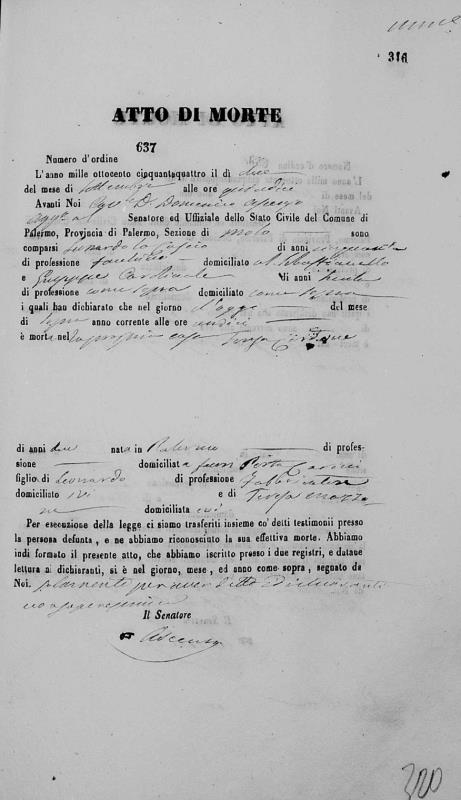 316
ATTO DI MORTE
637
Numero d'ordine
L'anno mille ottocento cinquantaquattro il dì due
del mese di settembre alle ore quindici
Avanti Noi Cav. D. Domenico Ascenso
Aggto al Senatore ed Uffiziale dello Stato Civile del Comune di
Palermo, Provincia di Palermo, Sezione di Molo sono
comparsi Leonardo lo Cascio di anni cinquanta
di professione domiciliato
e Giuseppe Cardinale di anni trenta
di professione come sopra domiciliato come sopra
i quali han dichiarato che nel giorno d'oggi del mese
di sopra anno corrente alle ore undici
è morta nella propria casa Teresa
di anni due nata in Palermo di profes-
sione domiciliata fuori Porta Carini
figlio di Leonardo di professione
domiciliato ivi e di Teresa
domiciliata ivi
Per esecuzione della legge ci siamo trasferiti insieme co' detti testimonii presso
la persona defunta, e ne abbiamo riconosciuto la sua effettiva morte. Abbiamo
indi formato il presente atto, che abbiamo iscritto presso i due registri, e datane
lettura ai dichiaranti, si è nel giorno, mese, ed anno come sopra, segnato da
Noi. solamente per aver detto i dichiaranti
non sapere scrivere
Il Senatore
Ascenso
320